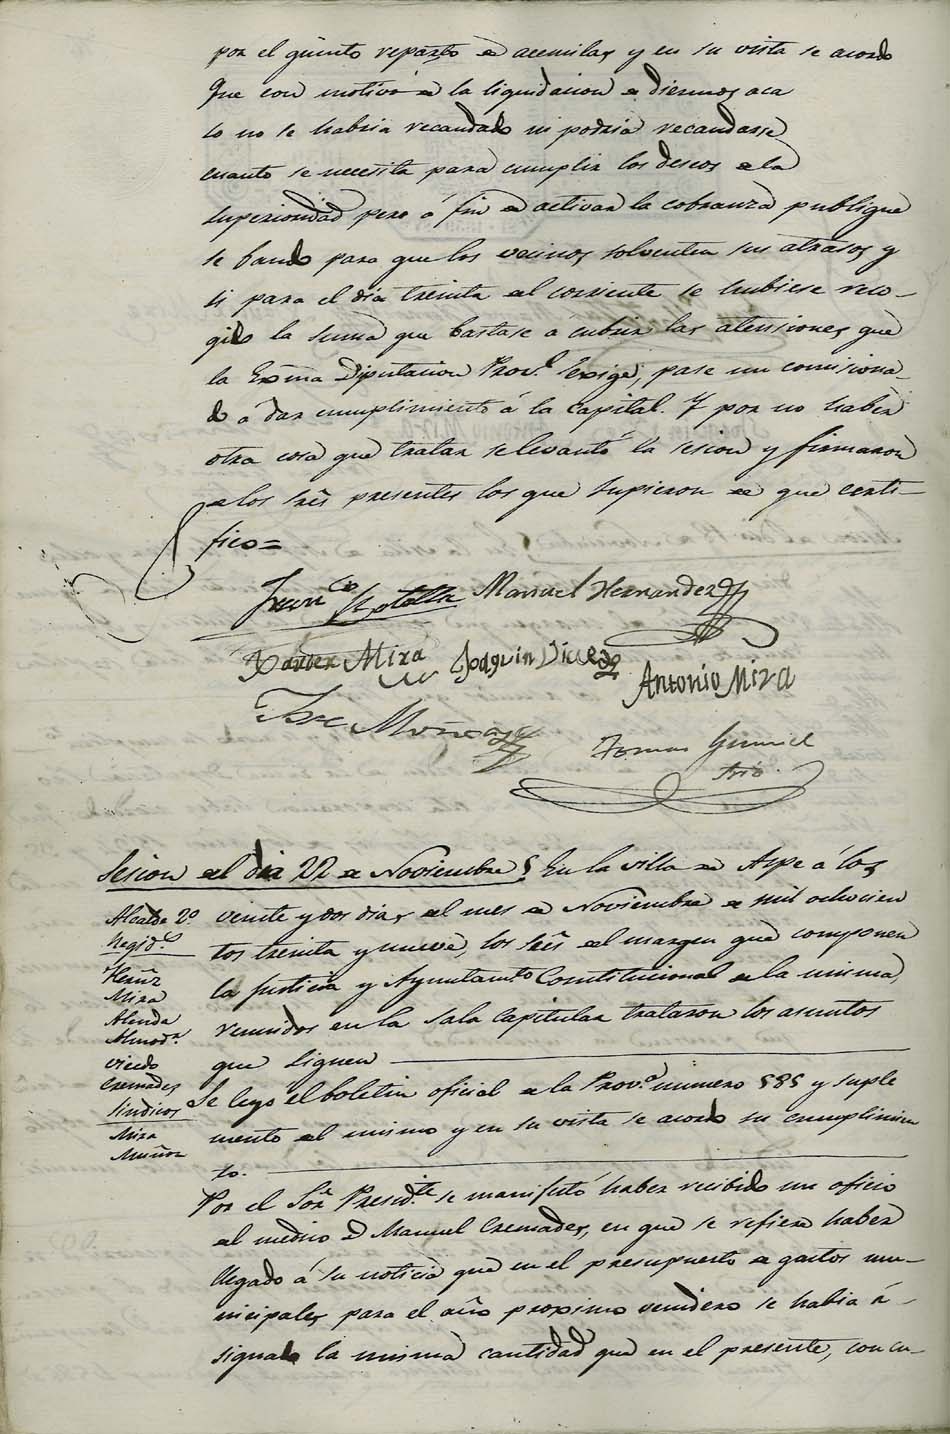 por el quinto reparto de acemilas y en su vista se acordo
Que con motivo de la liquidacion de diezmos aca
so no se habria recaudado ni podria recaudarse
cuanto se necesita para cumplir los deseos de la
Superioridad pero á fin de activar la cobranza publique
se bando para que los vecinos solventen sus atrasos y
si para el dia treinta del corriente se hubiese reco-
gido la suma que bastase á cubrir las atensiones que
la Exma Diputacion Prov.l exige, pase un comisiona-
do á dar cumplimiento á la capital. Y por no haber
otra cosa que tratar se levantó la sesion y firmaron
de los Srẽs presentes los que supieron de que certi-
fico=
Fran.co Botella Manuel Hernandez
Xavier Mira Joaquin Vicedo
Antonio Mira
Jose Muñoz
Tomas
Srio.
Sesion del dia 22 de Noviembre En la villa de Aspe á los
Alcalde 2.o veinte y dos dias del mes de Noviembre de mil ochocien
Regid.s tos treinta y nueve, los Srẽs del margen que componen
Herñz la Justicia y Ayuntam.to Constitucional de la misma,
Mira
Alenda reunidos en la Sala Capitular trataron los asuntos
Almod.r
Vicedo que siguen
Cremades Se leyo el boletin oficial de la Prov.a numero 585 y suple
Sindicos
Mira mento del mismo y en su vista se acordo su cumplimien
Muñoz to.
Por el Sõr Presid.te se manifestó haber recibido un oficio
del medico D Manuel Cremades, en que se refiere haber
llegado á su noticia que en el presupuesto de gastos mu-
nicipales para el año proximo venidero se habia á-
signado la misma cantidad que en el presente, con cu-